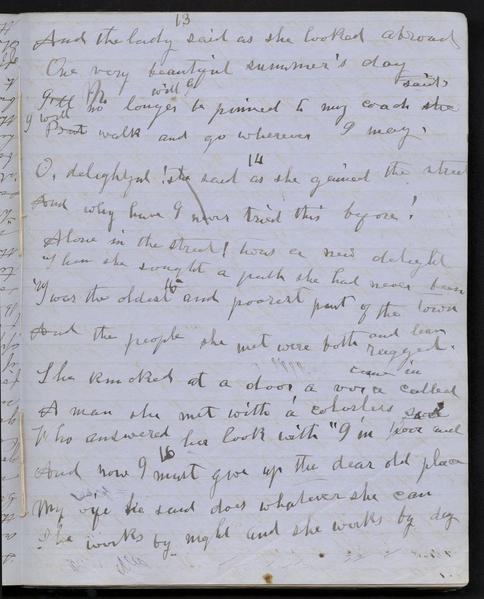 13
And the lady said as she looked abroad
One very beautiful summer's day
I will no longer be pinned to my coach she said
But walk and go wherever I may.
14
O, delightful! she said as she gained the street
And why have I never tried this before!
Alone in the street! twas a new delight
Then she sought a path she had never been
15
'Twas the oldest and poorest part of the town
And the people she met were both ragged and lean
She knocked at a door a voice called come in
A man she met with a colorless
Who answered her look with "I'm poor and
16
And now I must give up the dear old place
My wife he said does whatever she can
She works by night and she works by day